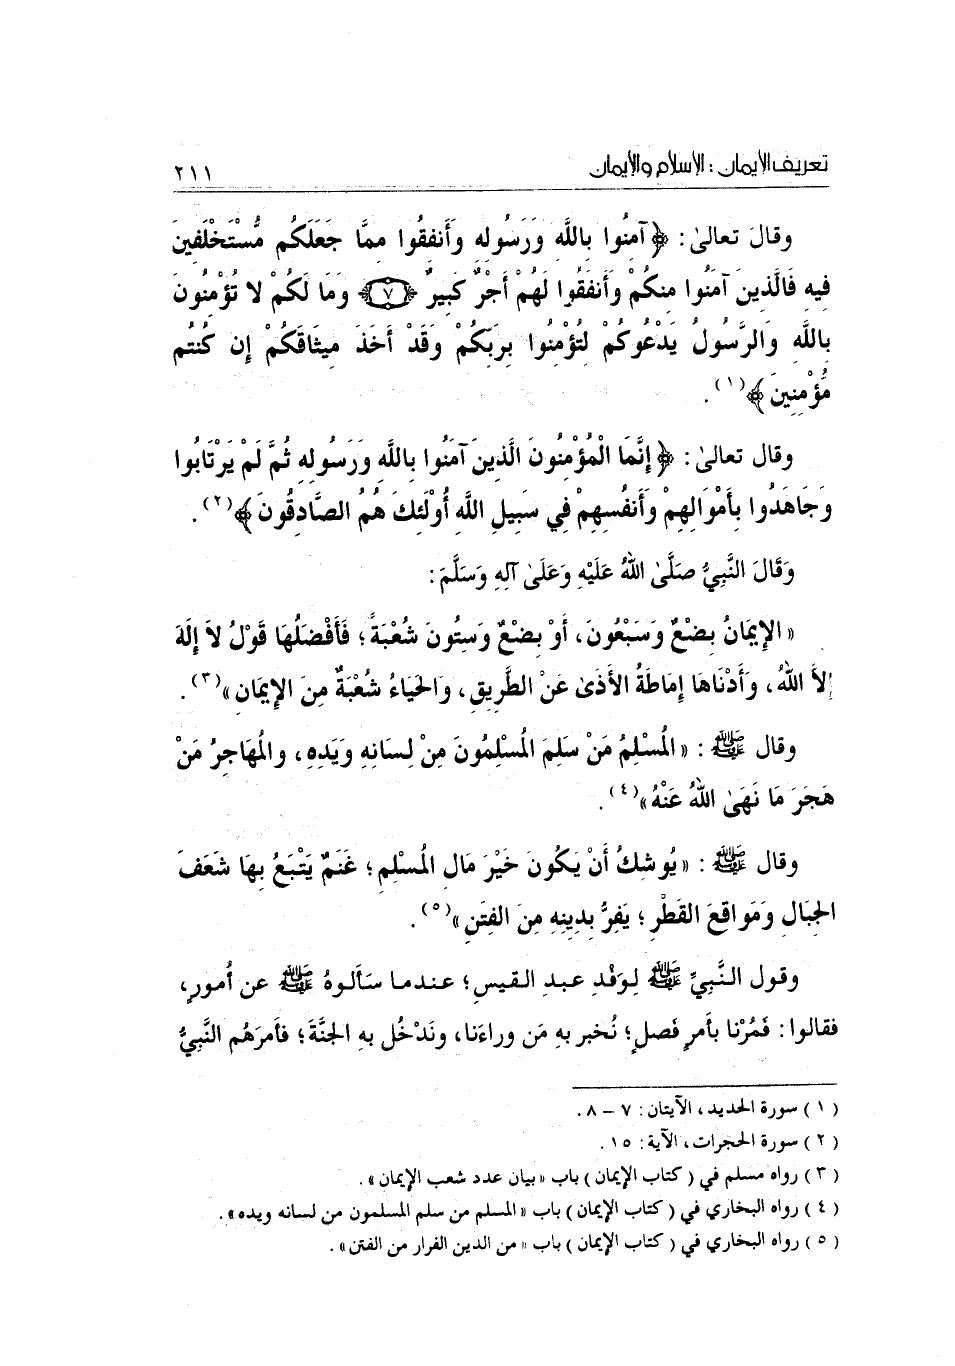 تعريف الأيمان : الأسلام والأيمان ٢١١
وقالَ تعالىٰ : ﴿ آمِنُوا بِاللَّهِ وَرَسُولِهِ وَأَنفِقُوا مِمَّا جَعَلَكُم مُّسْتَخْلَفِينَ
فِيهِ فَالَّذِينَ آمَنُوا مِنكُمْ وَأَنفَقُوا لَهُمْ أَجْرٌ كَبِيرٌ ﴿٧﴾ وَمَا لَكُمْ لا تُؤْمِنُونَ
بِاللَّهِ وَالرَّسُولُ يَدْعُوكُمْ لِتُؤْمِنُوا بِرَبِّكُمْ وَقَدْ أَخَذَ مِيثَاقَكُمْ إِن كُنتُم
مُّؤْمِنِينَ ﴾(١) .
وقال تعالىٰ : ﴿ إِنَّمَا الْمُؤْمِنُونَ الَّذِينَ آمَنُوا بِاللَّهِ وَرَسُولِهِ ثُمَّ لَمْ يَرْتَابُوا
وَجَاهَدُوا بِأَمْوَالِهِمْ وَأَنفُسِهِمْ فِي سَبِيلِ اللَّهِ أُوْلَئِكَ هُمُ الصَّادِقُونَ ﴾(٢) .
وَقَالَ النَّبِيُّ صَلَّىٰ اللهُ عَلَيْهِ وَعَلَىٰ آلِهِ وَسَلَّمَ :
« الإِيمَانُ بِضْعٌ وَسَبْعُونَ، أَوْ بِضْعٌ وَسِتُّونَ شُعْبَةً؛ فَأَفْضَلُهَا قَوْلُ لاَ إِلَهَ
إِلاَّ اللهُ، وَأَدْنَاهَا إِمَاطَةُ الأَذَىٰ عَنْ الطَّرِيقِ، وَالحَيَاءُ شُعْبَةٌ مِنَ الإِيمَانِ »(٣) .
وقال ﷺ : « المُسْلِمُ مَنْ سَلِمَ المُسْلِمُونَ مِنْ لِسَانِهِ وَيَدِهِ، والمُهَاجِرُ مَنْ
هَجَرَ مَا نَهَىٰ اللهُ عَنْهُ »(٤) .
وقال ﷺ : « يُوشِكُ أَنْ يَكُونَ خَيْرَ مَالِ المُسْلِمِ؛ غَنَمٌ يَتْبَعُ بِهَا شَعَفَ
الجِبَالِ وَمَوَاقِعَ القَطْرِ؛ يَفِرُّ بِدِينِهِ مِنَ الفِتَنِ »(٥) .
وقول النَّبِيِّ ﷺ لِوَفْدِ عبدِ القيسِ؛ عندما سَألوهُ ﷺ عن أمورٍ،
فقالوا : فَمُرْنا بأمرٍ فَصلٍ؛ نُخبر بهِ مَن وراءَنا، ونَدْخُل بهِ الجنَّةَ؛ فأمرَهُم النَّبِيُّ
(١) سورة الحديد، الآيتان : ٧ – ٨ .
(٢) سورة الحجرات، الآية : ١٥ .
(٣) رواه مسلم في ( كتاب الإيمان ) باب « بيان عدد شعب الإيمان » .
(٤) رواه البخاري في ( كتاب الإيمان ) باب « المسلم من سلم المسلمون من لسانه ويده » .
(٥) رواه البخاري في ( كتاب الإيمان ) باب « من الدين الفرار من الفتن » .